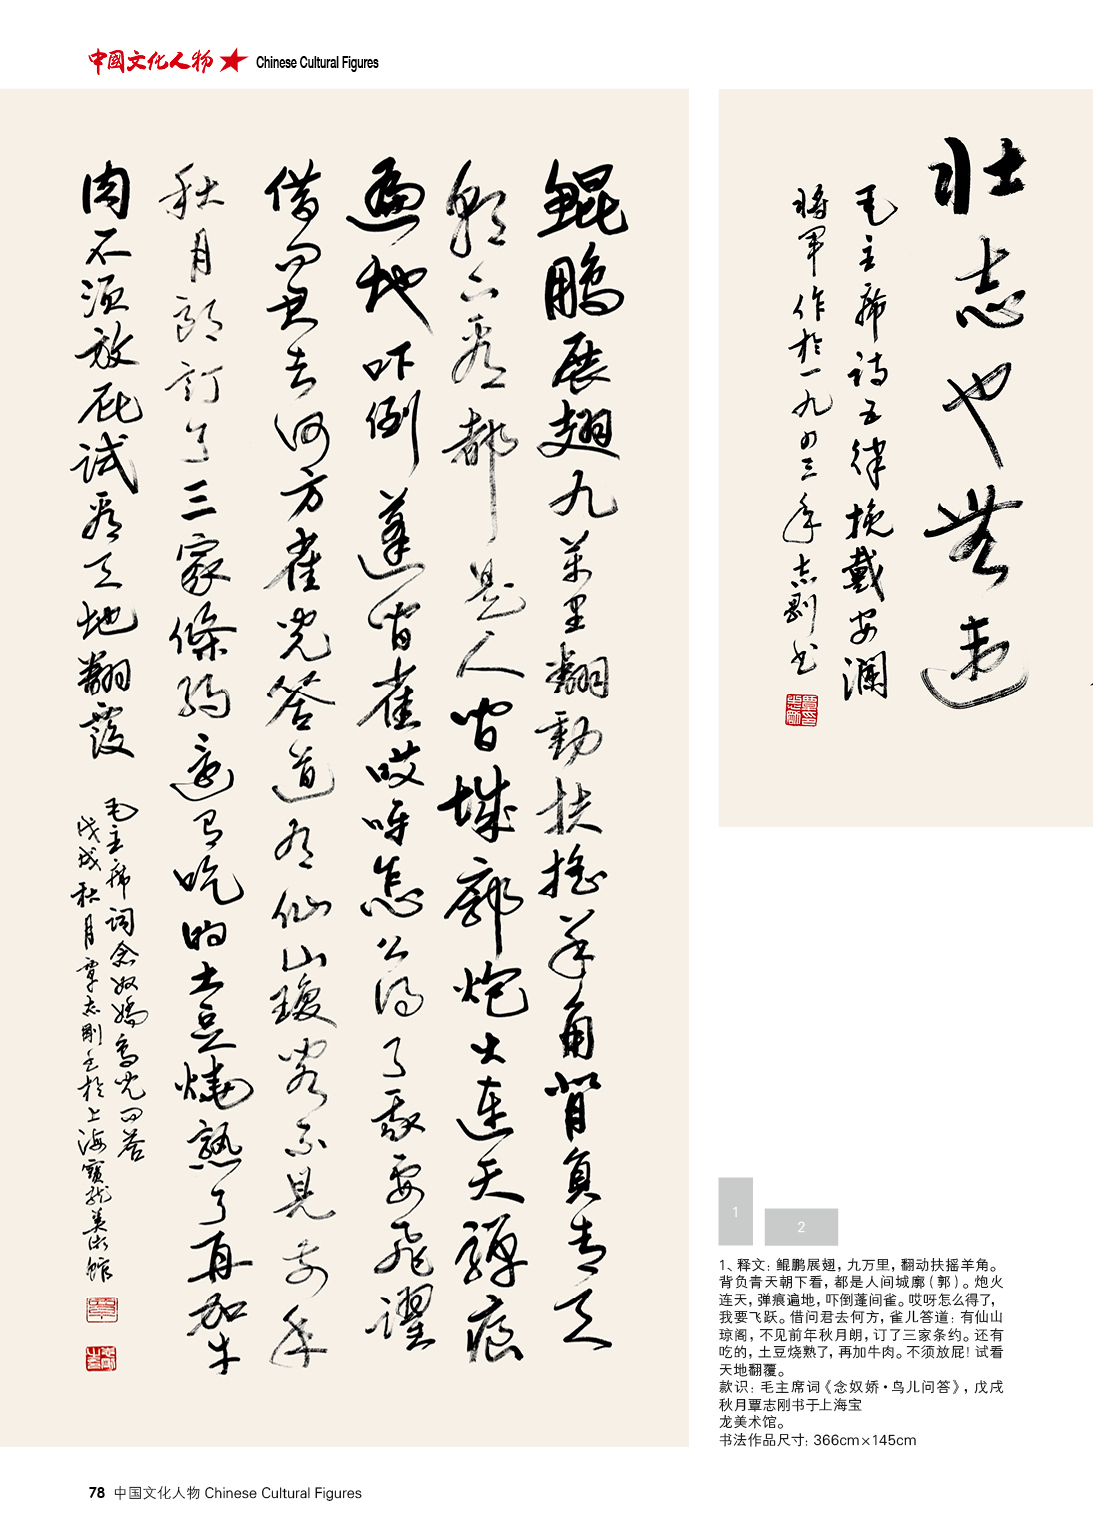 中國文化人物 Chinese Cultural Figures
鲲鹏展翅九万里翻動扶摇羊角背负青天
朝下看都是人间城郭炮火连天弹痕
遍地吓倒蓬间雀哎呀怎么得了我要飞躍
借问君去何方雀儿答道有仙山琼阁不见前年
秋月朗訂了三家條约还有吃的土豆燒熟了再加牛
肉不须放屁试看天地翻覆
毛主席词念奴嬌鸟儿问答
戊戌秋月覃志剛书於上海寶龙美術館
壮志也无违
毛主席诗五律挽戴安澜
将军作於一九四三年志剛书
1
2
1、释文：鲲鹏展翅，九万里，翻动扶摇羊角。
背负青天朝下看，都是人间城廓（郭）。炮火
连天，弹痕遍地，吓倒蓬间雀。哎呀怎么得了，
我要飞跃。借问君去何方，雀儿答道：有仙山
琼阁，不见前年秋月朗，订了三家条约。还有
吃的，土豆烧熟了，再加牛肉。不须放屁！试看
天地翻覆。
款识：毛主席词《念奴娇·鸟儿问答》，戊戌
秋月覃志刚书于上海宝
龙美术馆。
书法作品尺寸：366cm×145cm
78 中国文化人物 Chinese Cultural Figures